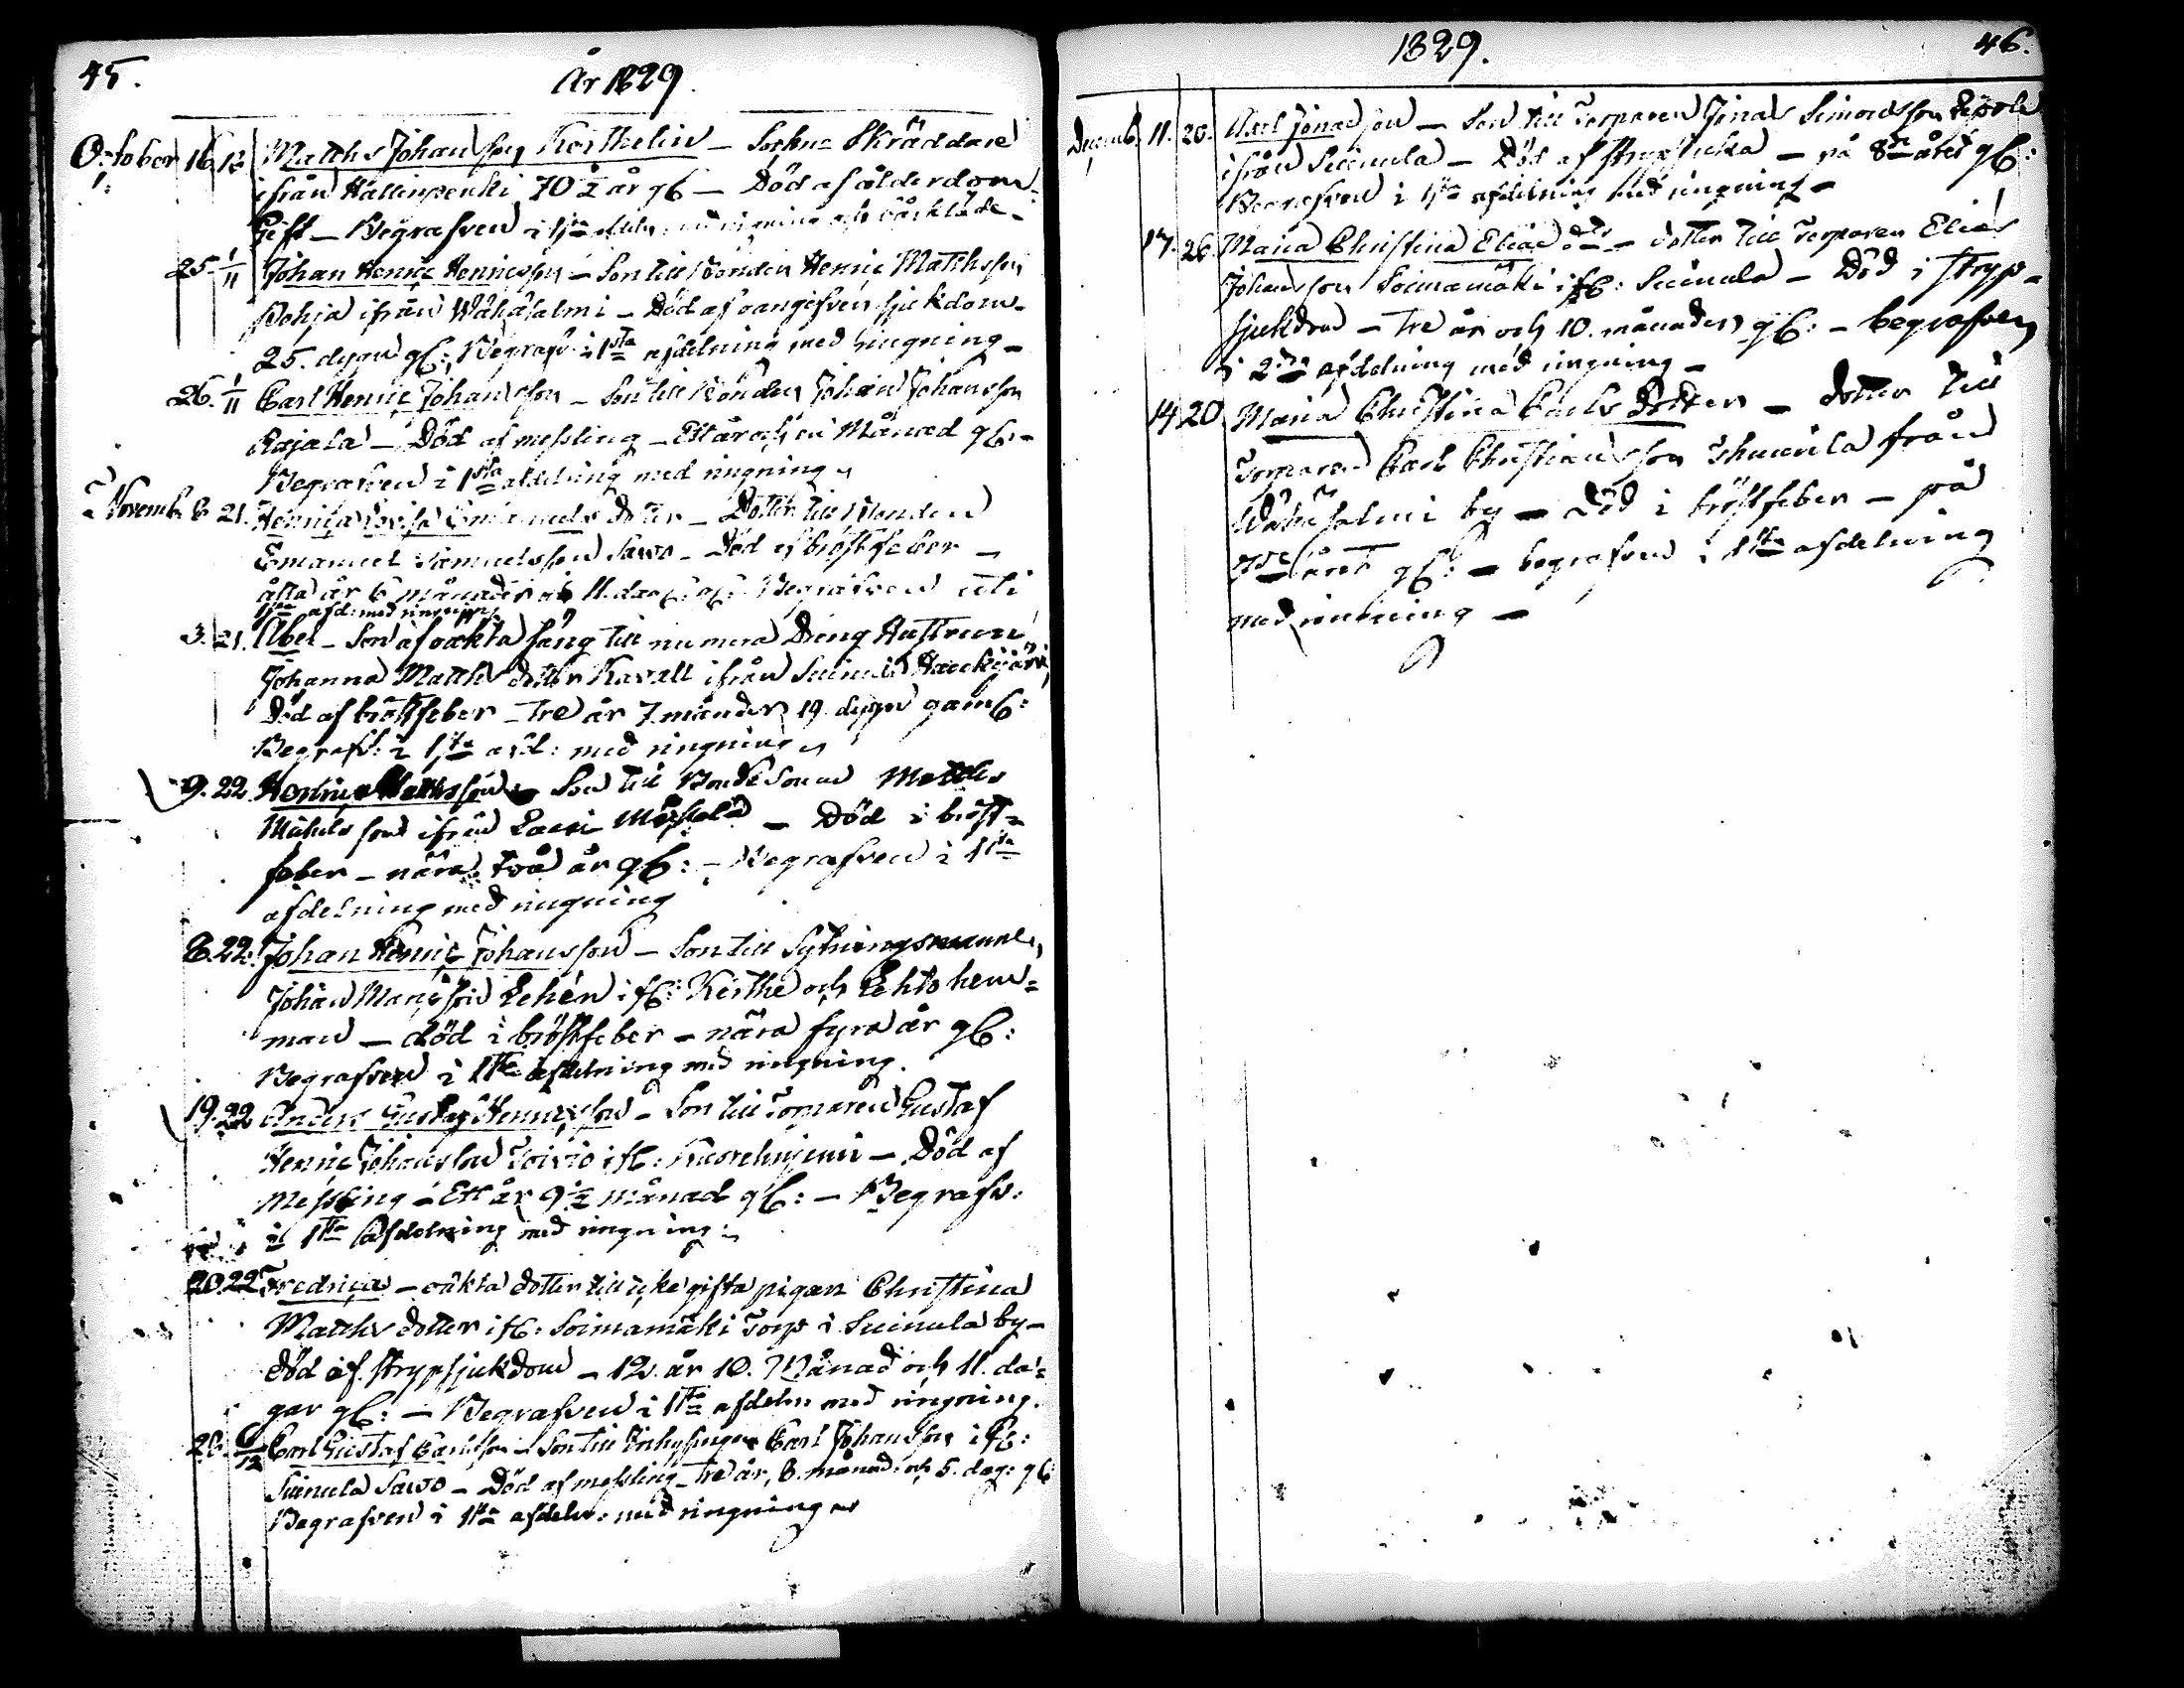 45.
År 1829.
October 16 18 Matths Johansson Korthelin – Sockne Skräddare
ifrån Hallinpenki 70 ½ år gl – Död af ålderdom
Gift – Begrafven i 1sta afdeln: med ringning och bårkläde –
25. 1/11 Johan Henric Henricsson – Son till Bonden Henric Matthsson
Pohja ifrån Wähäsalmi – Död af oangifven sjukdom –
25. dygn gl: Begrafv: i 1sta afdelning med ringning –
26. 1/11 Carl Henric Johansson – Son till Bonden Johan Johansson
Rajala – Död af messling – Ett år och en Månad gl: –
Begrafven i 1sta afdelning med ringning
Novemb. 8 21. Henrica Lovisa Emanuels dotter – Dotter till Bonden
Emanuel Samuelsson Sawo – Död af bröstfeber –
åtta år 6 månader och 11. dag: gl: Begrafven uti
1sta afd: med ringning
3. 21. Abel – Son af oäkta säng till numera Dreng Hustrun
Johanna Matths dotter Kavall ifrån Suinula
Död af bröstfeber – Tre år 7. månader 19. dygn gaml:
Begrafv: i 1sta afd: med ringning
9. 22. Matthsson – Son till Bonde Sonen Matths
Michelsson ifrån – Död i bröst=
feber – nära två år gl: – Begrafven i 1sta
afdelning med ringning
8. 22. Johan Henric Johansson – Son till Sytningsmannen
Johan Mariæson Lehén ifl: Kerthe och Lehto hem=
man – död i bröstfeber – nära fyra år gl:
Begrafven i 1sta afdelning med ringning.
19. 22 Anders Gustaf Henricsson – Son till Torparen Gustaf
Henric Johansson Toivio ifl: – Död af
Messling – Ett år 9 ½ månad gl: – Begrafv:
i 1sta Afdelning med ringning:
20. 22 Fredrica – oäkta dotter till icke gifta pigan Christina
Matths dotter ifl: Soimamäki Torp i Suinula by –
död af strypsjukdom – 12. år 10. Månad och 11. da=
gar gl: – Begrafven i 1sta afdeln: med ringning.
28. 6/12 Carl Gustaf Carlsson – Son till Inhysingen Carl Johansson ifl:
Suinula Sawo – Död af messling – Tre år, 8. månad: och 5. dag: gl:
Begrafven i 1sta afdeln: med ringning
1829.
46.
Decemb. 11. 20. Axel Jonasson – Son till Torparen Jonas Simonsson
ifrån Suinula – Död af strypsjuka – på 8de året gl:
Begrafven i 1sta afdelning med ringning –
17. 26. Maria Christina Eliæ dotr – dotter till Torparen Elias
Johansson Soimamäki ifl: Suinula – Död i stryp=
sjukdom – Tre år och 10. månader gl: – begrafven
i 2dra afdelning med ringning –
14 20 Maria Christina Carls Dotter – dotter till
Torparen Carl Christiansson från
Wähäsalmi by – Död i bröstfeber – på
7de året gl: – begrafven i 1sta afdelning
med ringning –